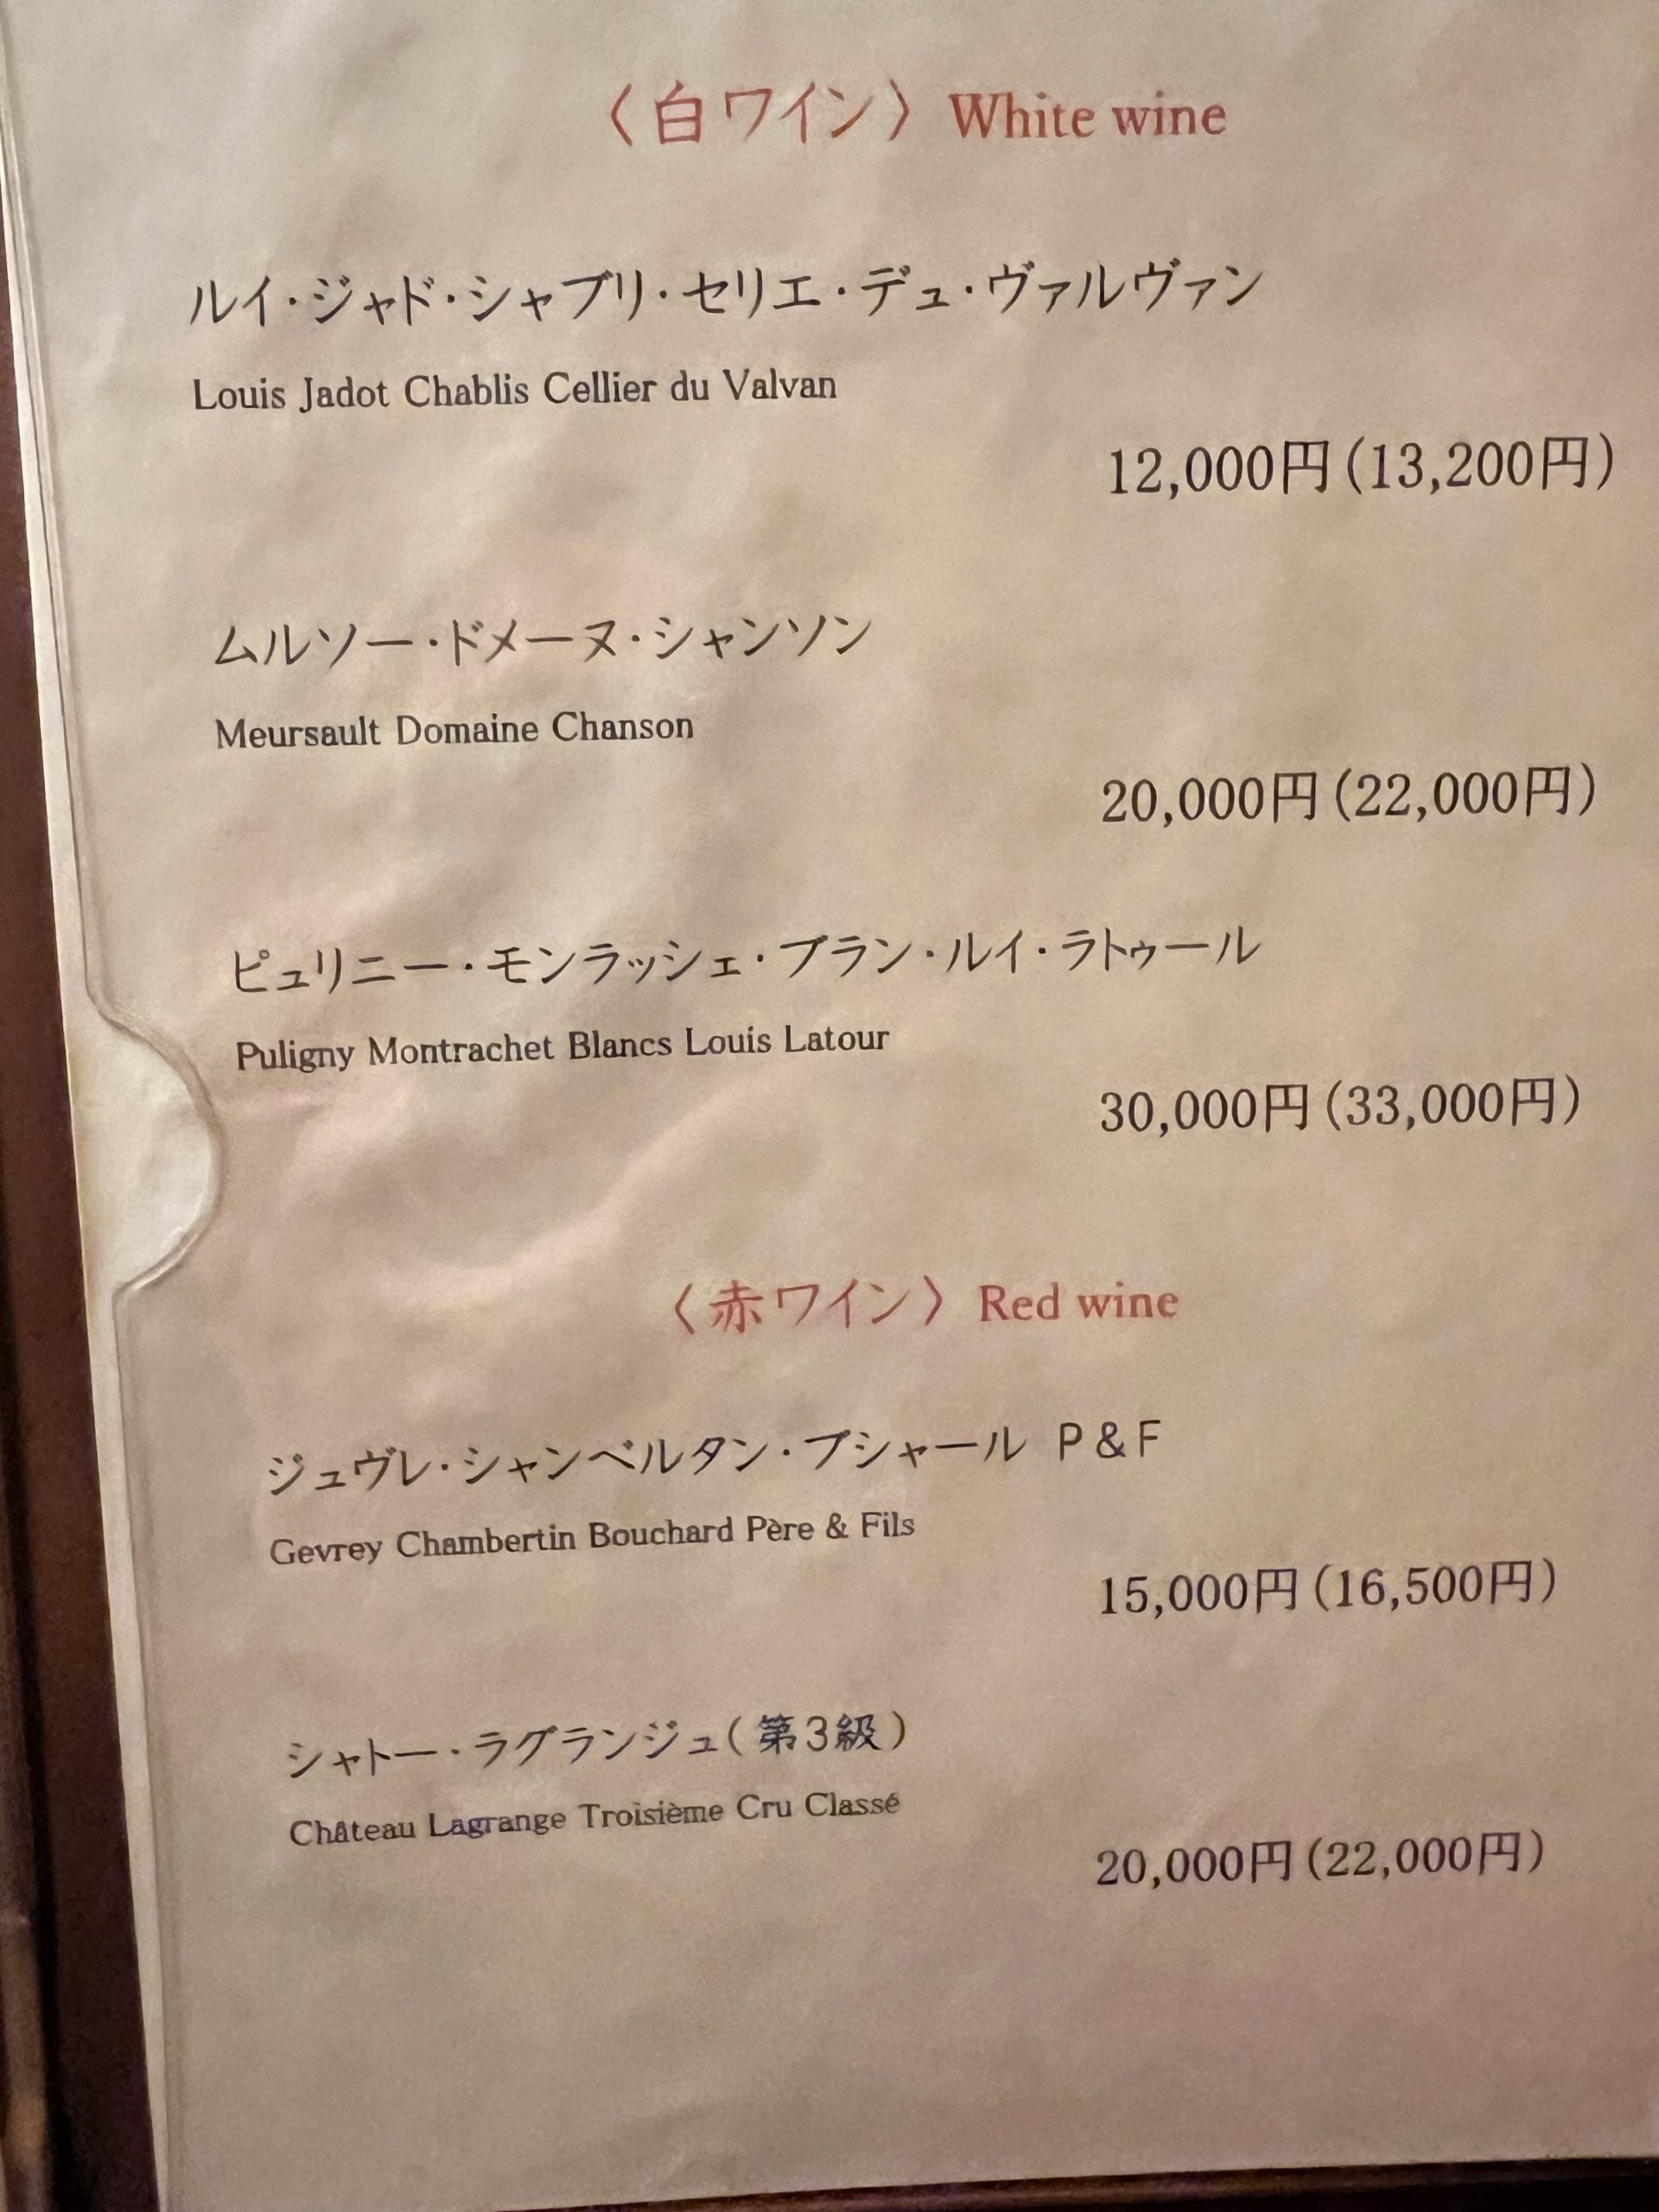 〈白ワイン〉White wine
ルイ・ジャド・シャブリ・セリエ・デュ・ヴァルヴァン
Louis Jadot Chablis Cellier du Valvan
12,000円(13,200円)
ムルソー・ドメーヌ・シャンソン
Meursault Domaine Chanson
20,000円(22,000円)
ピュリニー・モンラッシェ・ブラン・ルイ・ラトゥール
Puligny Montrachet Blancs Louis Latour
30,000円(33,000円)
〈赤ワイン〉Red wine
ジュヴレ・シャンベルタン・ブシャール P&F
Gevrey Chambertin Bouchard Père & Fils
15,000円(16,500円)
シャトー・ラグランジュ(第3級)
Château Lagrange Troisième Cru Classé
20,000円(22,000円)